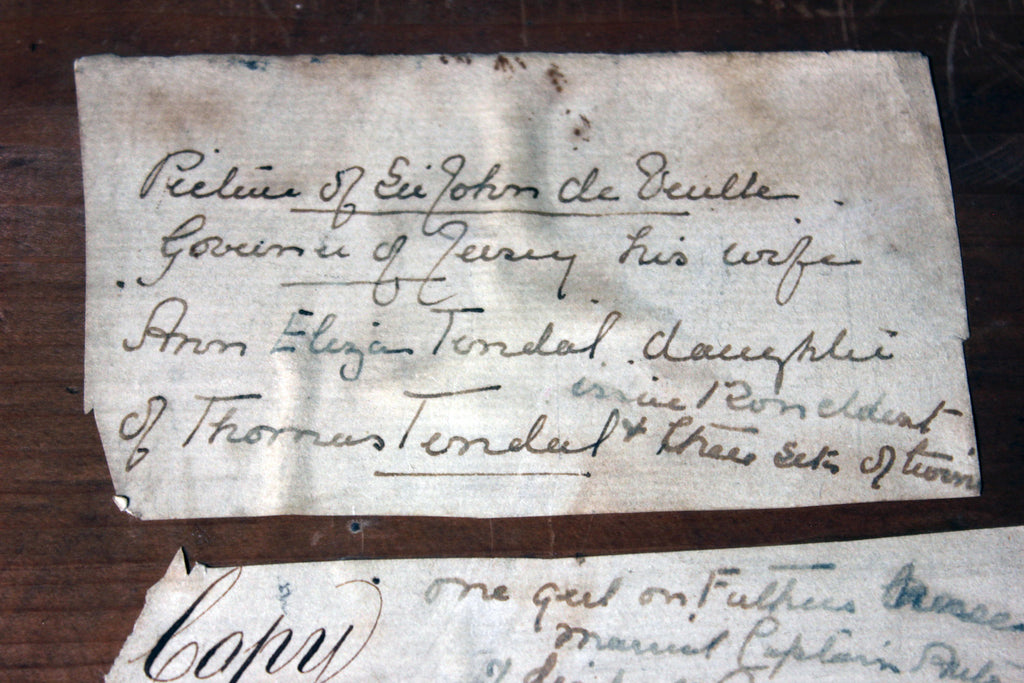 Picture of Sir John de Veulle
Governer of Jersey his wife
Ann Eliza Tendal daughter
issue 1 son eldest
of Thomas Tendal & three sets of twins
one girl on Fathers
married Captain
Copy